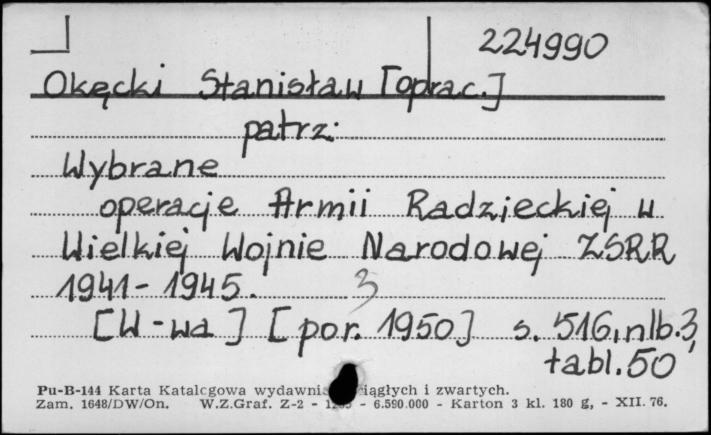 224990
Okęcki Stanisław [oprac.]
patrz:
Wybrane
operacje Armii Radzieckiej w
Wielkiej Wojnie Narodowej ZSRR
1941-1945. 3
[W-wa] [por. 1950] s. 516, nlb. 3,
tabl. 50
Pu-B-144 Karta Katalogowa wydawni ciągłych i zwartych.
Zam. 1648/DW/On. W.Z.Graf. Z-2 - - 6.590.000 - Karton 3 kl. 180 g, - XII. 76.